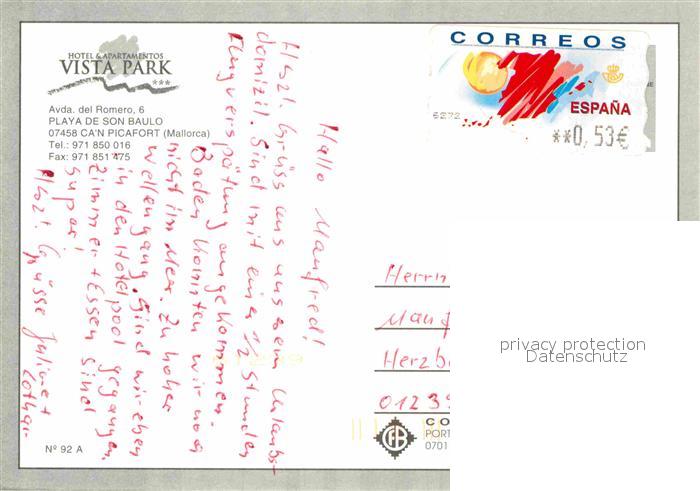 HOTEL & APARTAMENTOS
VISTA PARK
***
Avda. del Romero, 6
PLAYA DE SON BAULO
07458 CA'N PICAFORT (Mallorca)
Tel.: 971 850 016
Fax: 971 851 475
CORREOS
ESPAÑA
**0,53€
Hallo Manfred!
Hzl. Grüss aus unserem Urlaubs-
domizil. Sind mit einer 1/2 Stunden
Flugverspätung angekommen.
Baden konnten wir noch
nicht im Meer. Zu hoher
Wellengang. Sind wir eben
in den Hotelpool gegangen.
Zimmer + Essen sind
super!
Hzl. Grüsse Juliane +
Lothar
Herrn
Manf
Herzb
0123
privacy protection
Datenschutz
Nº 92 A
CO
PORT
0701